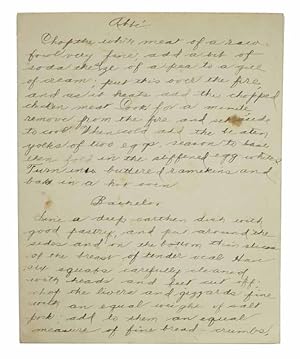 Abbé
Chop the white meat of a raw
fowl very fine, add a bit of
soda the size of a pea to a gill
of cream. put this over the fire,
and as it heats add the chopped
chicken meat. Cook for a minute
remove from the fire and set aside
to cool. When cold add the beaten
yolks of two eggs. season to taste
then fold in the stiffened egg whites
Turn into buttered ramekins and
bake in a hot oven
Bachelor
Line a deep earthen dish with
good pastry, and put around the
sides and on the bottom thin slices
of the breast of tender veal Have
six squabs carefully cleaned
with heads and feet cut off,
chop the livers and gizzards fine
with an equal weight of salt
pork. add to them an equal
measure of fine bread crumbs,